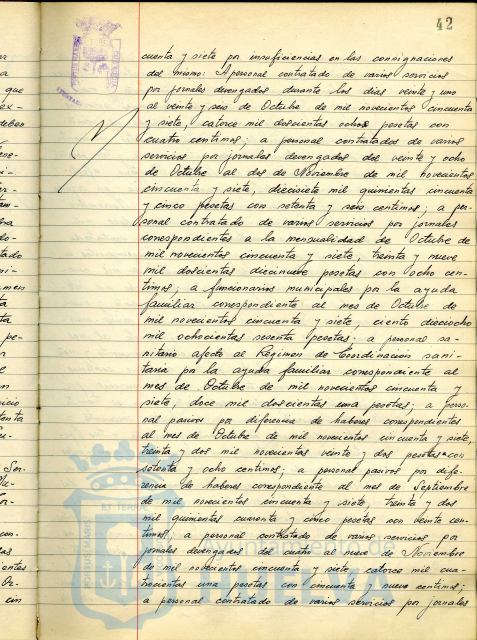 42
cuenta y siete por insuficiencias en las consignaciones
del mismo: A personal contratado de varios servicios
por jornales devengados durante los dias veinte y uno
al veinte y seis de Octubre de mil novecientos cincuenta
y siete, catorce mil doscientas ochos pesetas con
cuatro centimos; a personal contratados de varios
servicios por jornales devengados del veinte y ocho
de Octubre al dos de Noviembre de mil novecientos
cincuenta y siete, diecisiete mil quinientas cincuenta
y cinco pesetas con setenta y seis centimos; a per-
sonal contratado de varios servicios por jornales
correspondientes a la mensualidad de Octubre de
mil novecientos cincuenta y siete, treinta y nueve
mil doscientas diecinueve pesetas con ocho cen-
timos; a funcionarios municipales por la ayuda
familiar correspondiente al mes de Octubre de
mil novecientos cincuenta y siete, ciento dieciocho
mil ochocientas sesenta pesetas; a personal sa-
nitario afecto al Régimen de Coordinación sani-
taria por la ayuda familiar correspondiente al
mes de Octubre de mil novecientos cincuenta y
siete, doce mil doscientas una pesetas; a perso-
nal pasivos por diferencia de haberes correspondientes
al mes de Octubre de mil novecientos cincuenta y siete,
treinta y dos mil novecientas veinte y dos pesetas con
setenta y ocho centimos; a personal pasivos por dife-
rencia de haberes correspondiente al mes de Septiembre
de mil novecientos cincuenta y siete treinta y dos
mil quinientas cuarenta y cinco pesetas con veinte cen-
timos; a personal contratado de varios servicios por
jornales devengados del cuatro al nueve de Noviembre
de mil novecientos cincuenta y siete catorce mil cua-
trocientas una pesetas con cincuenta y nueve centimos;
a personal contratado de varios servicios por jornales